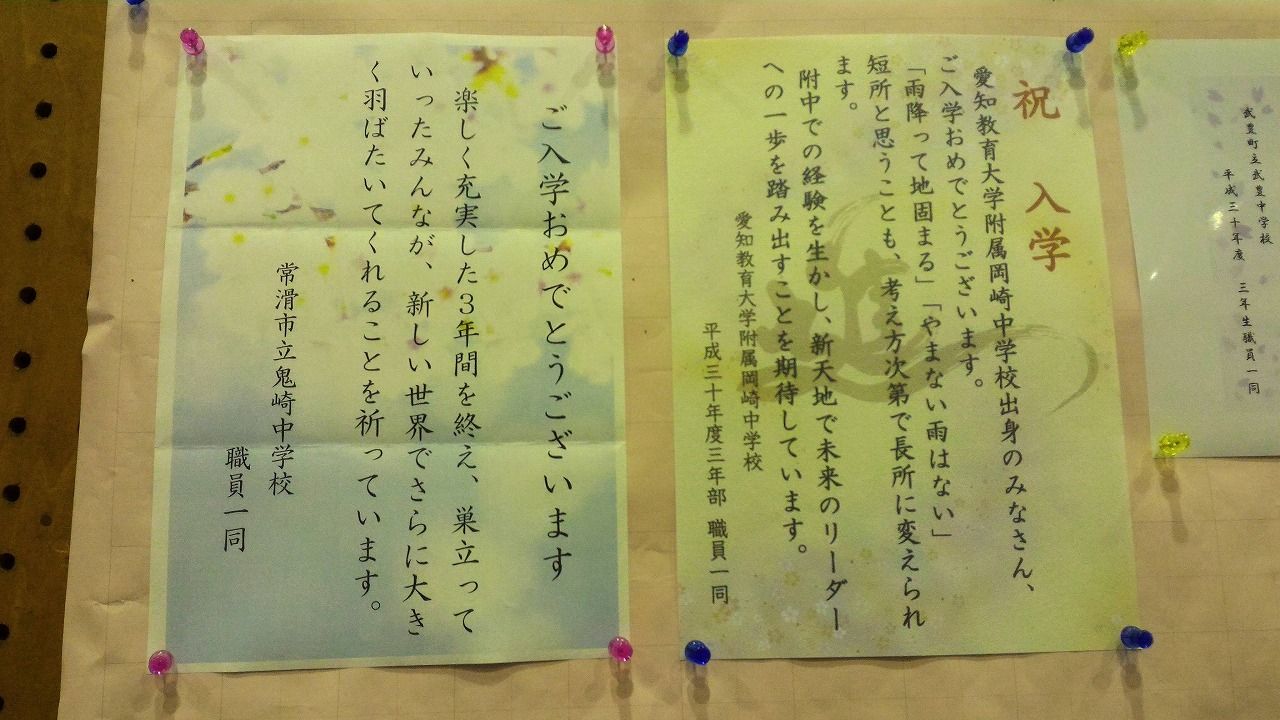 武豊町立武豊中学校
平成三十年度 三年生職員一同
祝 入学
愛知教育大学附属岡崎中学校出身のみなさん、
ご入学おめでとうございます。
「雨降って地固まる」「やまない雨はない」
短所と思うことも、考え方次第で長所に変えられ
ます。
附中での経験を生かし、新天地で未来のリーダー
への一歩を踏み出すことを期待しています。
愛知教育大学附属岡崎中学校
平成三十年度三年部 職員一同
ご入学おめでとうございます
楽しく充実した3年間を終え、巣立って
いったみんなが、新しい世界でさらに大き
く羽ばたいてくれることを祈っています。
常滑市立鬼崎中学校
職員一同